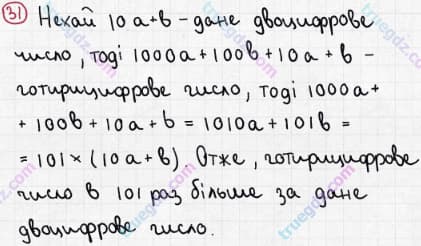 31) Нехай 10a+b - дане двоцифрове
число, тоді 1000a+100b+10a+b -
чотирицифрове число, тоді 1000a+
+100b+10a+b = 1010a+101b =
=101×(10a+b). Отже, чотирицифрове
число в 101 раз більше за дане
двоцифрове число.
truegdz.com
truegdz.com
truegdz.com
truegdz.com